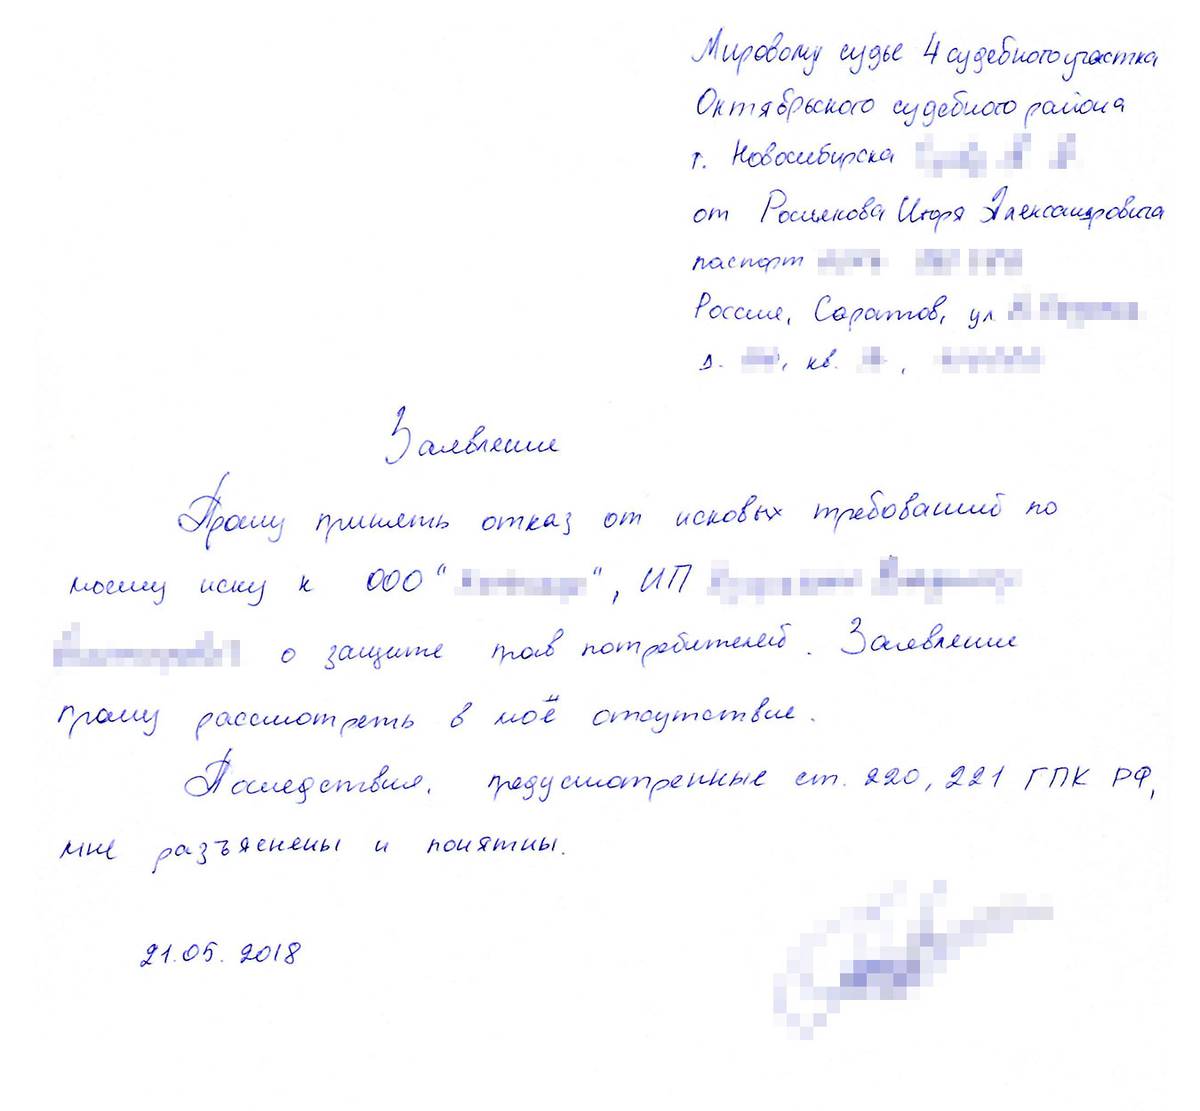 Мировому судье 4 судебного участка
Октябрьского судебного района
г. Новосибирска
от Росликова Игоря Александровича
паспорт
Россия, Саратов, ул
д. , кв. ,
Заявление
Прошу принять отказ от исковых требований по
моему иску к ООО " ", ИП
о защите прав потребителей. Заявление
прошу рассмотреть в моё отсутствие.
Последствия, предусмотренные ст. 220, 221 ГПК РФ,
мне разъяснены и понятны.
21.05.2018